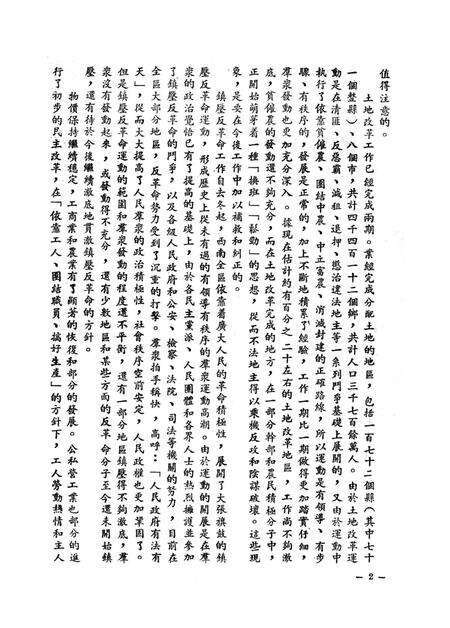 值得注意的。
土地改革工作已經完成兩期。業經完成分配土地的地區，包括一百七十二個縣（其中七十
一個整縣）、八個市，共計四千四百一十二個鄉，共計人口三千七百餘萬人。由於土地改革運
動是在清匪、反惡霸、減租、退押、懲治違法地主等一系列鬥爭基礎上展開的，又由於運動中
執行了依靠貧僱農、團結中農、中立富農、消滅封建的正確路線，所以運動是有領導、有步
驟、有秩序的，發展是正常的，加上不斷地積累了經驗，工作一期比一期做得更加踏實仔細，
羣眾發動也更加充分深入。據現在估計約有百分之二十左右的土地改革地區，工作尚不夠澈
底，貧僱農的發動還不夠充分，而在土地改革完成的地方，在一部分幹部和農民積極分子中，
正開始萌芽着一種「換班」「鬆勁」的思想，從而不法地主得以乘機反攻和陰謀破壞。這些現
象，是要在今後工作中加以補救和糾正的。
鎮壓反革命工作自去冬起，西南全區依靠着廣大人民的革命積極性，展開了大張旗鼓的鎮
壓反革命運動，形成歷史上從未有過的有領導有秩序的羣眾運動高潮。由於運動的開展是在羣
眾的政治覺悟已有了提高的基礎上，由於各民主黨派、人民團體和各界人士的熱烈擁護並參加
了鎮壓反革命的鬥爭，以及各級人民政府和公安、檢察、法院、司法等機關的努力，目前在
全區大部分地區，反革命勢力受到了沉重的打擊。羣眾拍手稱快，高呼：「人民政府有法有
天」，從而大大提高了人民羣眾的政治積極性，社會秩序空前安定，人民政權也更加鞏固了。
但是鎮壓反革命運動的範圍和羣眾發動的程度還不平衡，還有一部分地區鎮壓得不夠澈底，羣
眾沒有發動起來，或發動得不充分，還有少數地區和某些方面的反革命分子至今還未開始鎮
壓，還有待於今後繼續澈底地貫澈鎮壓反革命的方針。
物價保持繼續穩定，工商業和農業有了顯著的恢復和部分的發展。公私營工業也部分的進
行了初步的民主改革，在「依靠工人、團結職員、搞好生產」的方針下，工人勞動熱情和主人
— 2 —